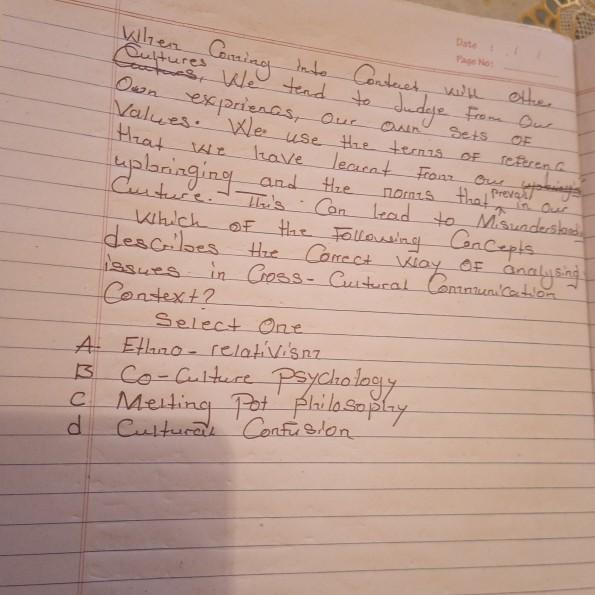 Date :
Page No:
When Coming into Contact with other
Cultures, We tend to Judge From Our
Own expriences, Our Own Sets OF
Values. We use the terms OF referenc
that we have learnt From our
upbringing and the norms that Prevail in our
Culture. This Can lead to Misunderstood
Which OF the Following Concepts
describes the Correct way OF analysing
issues in Cross-Cultural Communication
Context?
Select One
A Ethno-relativism
B Co-Culture Psychology
C Melting Pot philosophy
d Cultural Confusion